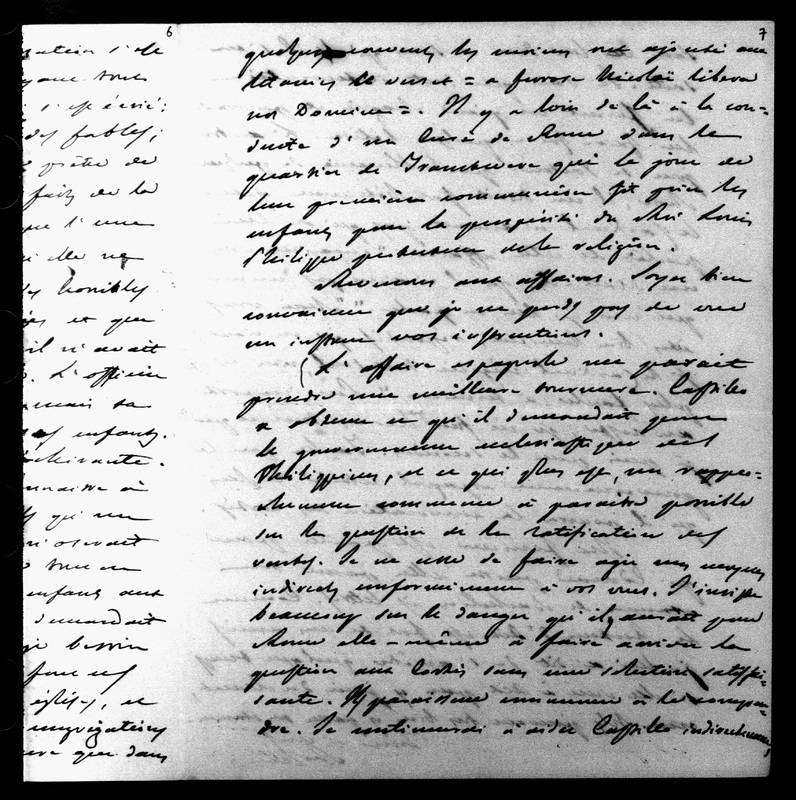 6
ation s'ile
que tous
s'est écrié :
des fables ;
prêtre de
faits de la
que l'une
elle ne
les horribles
et que
il n'avait
L'officier
mais sa
enfants.
naître à
qui me
n'oserait
tout en
enfants aux
demandait
besoin
églises, et
congrégations
que dans
7
quelques couvents les moines ont ajouté aux
litanies le verset = a furore Nicolaï libera
nos Domine =. Il y a loin de là à la con-
duite d'un Curé de Rome dans le
quartier de Transtevere qui le jour de
leur première communion fit prier les
enfants pour la prospérité du Roi Louis
Philippe protecteur de la religion.
Revenons aux affaires. Soyez bien
convaincu que je ne perds pas de vue
un instant vos instructions.
(L'affaire espagnole me parait
prendre une meilleure tournure. Castillo
a obtenu ce qu'il demandait pour
le gouvernement ecclésiastique des
Philippines, et ce qui plus est, un rappro-
chement commence à paraitre possible
sur la question de la ratification des
ventes. Je ne cesse de faire agir mes moyens
indirects conformément à vos vues. J'insiste
beaucoup sur le danger qu'il y aurait pour
Rome elle-même à faire arriver la
question aux Cortès sans une solution satisfai-
sante. Ils paraissent commencer à le compren-
dre. Je continuerai à aider Castillo indirectement